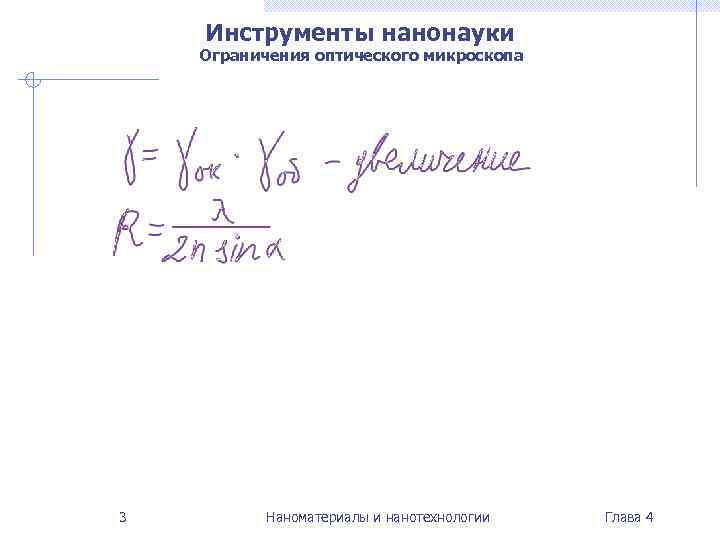 Инструменты нанонауки
Ограничения оптического микроскопа
γ = γок · γоб – увеличение
R = λ / 2n sin α
3 Наноматериалы и нанотехнологии Глава 4